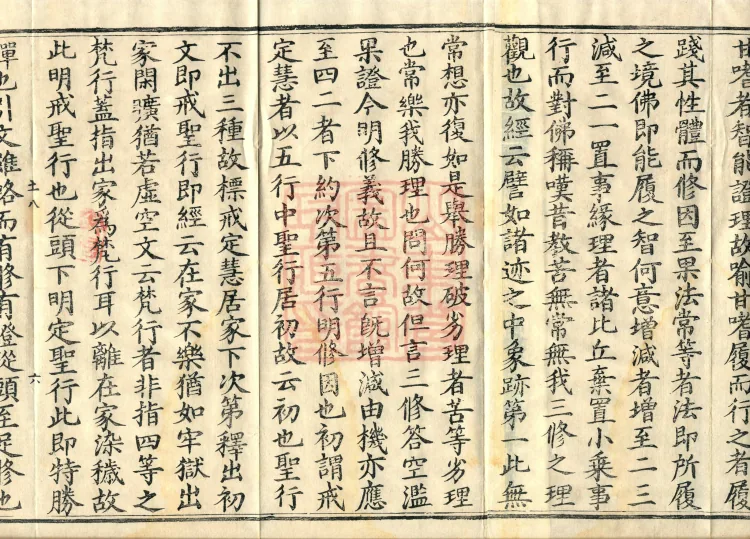 甘嗜者智能證理故喻甘嗜履而行之者履
踐其性體而修因至果法常等者法即所履
之境佛即能履之智何意增減者增至二三
減至二一置事緣理者諸比丘棄置小乘事
行而對佛稱嘆昔教苦無常無我三修之理
觀也故經云譬如諸迹之中象跡第一此無
常想亦復如是舉勝理破劣理者苦等劣理
也常樂我勝理也問何故但言三修答空濫
果證今明修義故且不言旣增減由機亦應
至四二者下約次第五行明修因也初謂戒
定慧者以五行中聖行居初故云初也聖行
不出三種故標戒定慧居家下次第釋出初
文即戒聖行即經云在家不樂猶如牢獄出
家閑曠猶若虛空文云梵行者非指四等之
梵行蓋指出家為梵行耳以離在家染穢故
此明戒聖行也從頭下明定聖行此即特勝
土八
六
禪也引文雖略而有修有證從頭至足修也